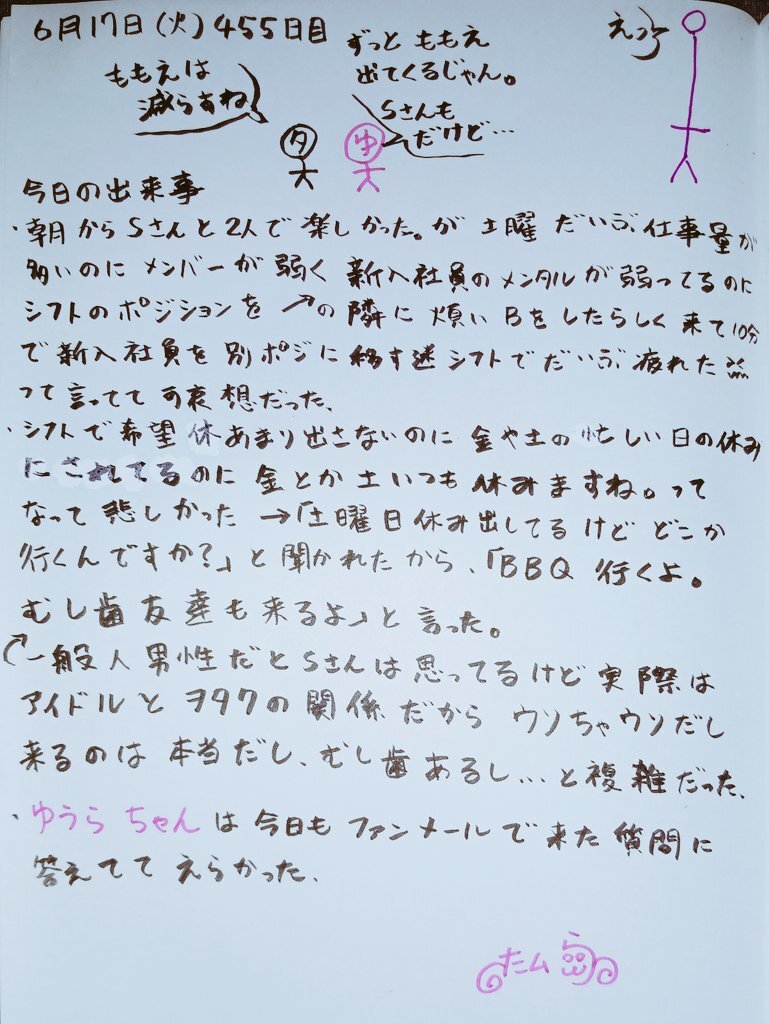 6月17日(火)455日目
ももえは
減らすね!
ずっとももえ
出てくるじゃん。
Sさんも
だけど…
えっ
タ
ゆ
今日の出来事
・朝からSさんと2人で楽しかった。が土曜だいぶ仕事量が
多いのにメンバーが弱く新入社員のメンタルが弱ってるのに
シフトのポジションを↗の隣に煩いBをしたらしく来て10分
で新入社員を別ポジに移す迷シフトでだいぶ疲れた
って言ってて可哀想だった、
・シフトで希望休あまり出さないのに金や土の忙しい日の休み
にされてるのに金とか土いつも休みますね。って
なって悲しかった→「土曜日休み出してるけどどこか
行くんですか?」と聞かれたから、「BBQ行くよ。
むし歯友達も来るよ」と言った。
一般人男性だとSさんは思ってるけど実際は
アイドルとヲタクの関係だからウソちゃウソだし
来るのは本当だし、むし歯あるし…と複雑だった、
・ゆうらちゃんは今日もファンメールで来た質問に
答えててえらかった、
たム